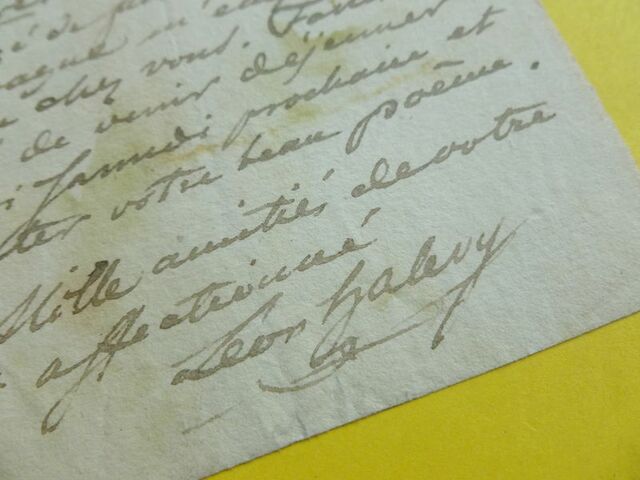 é de
chez vous.
de venir déjeuner
Samedi prochain et
ter votre beau poème.
Mille amitiés de votre
affectionné
Léon Halevy